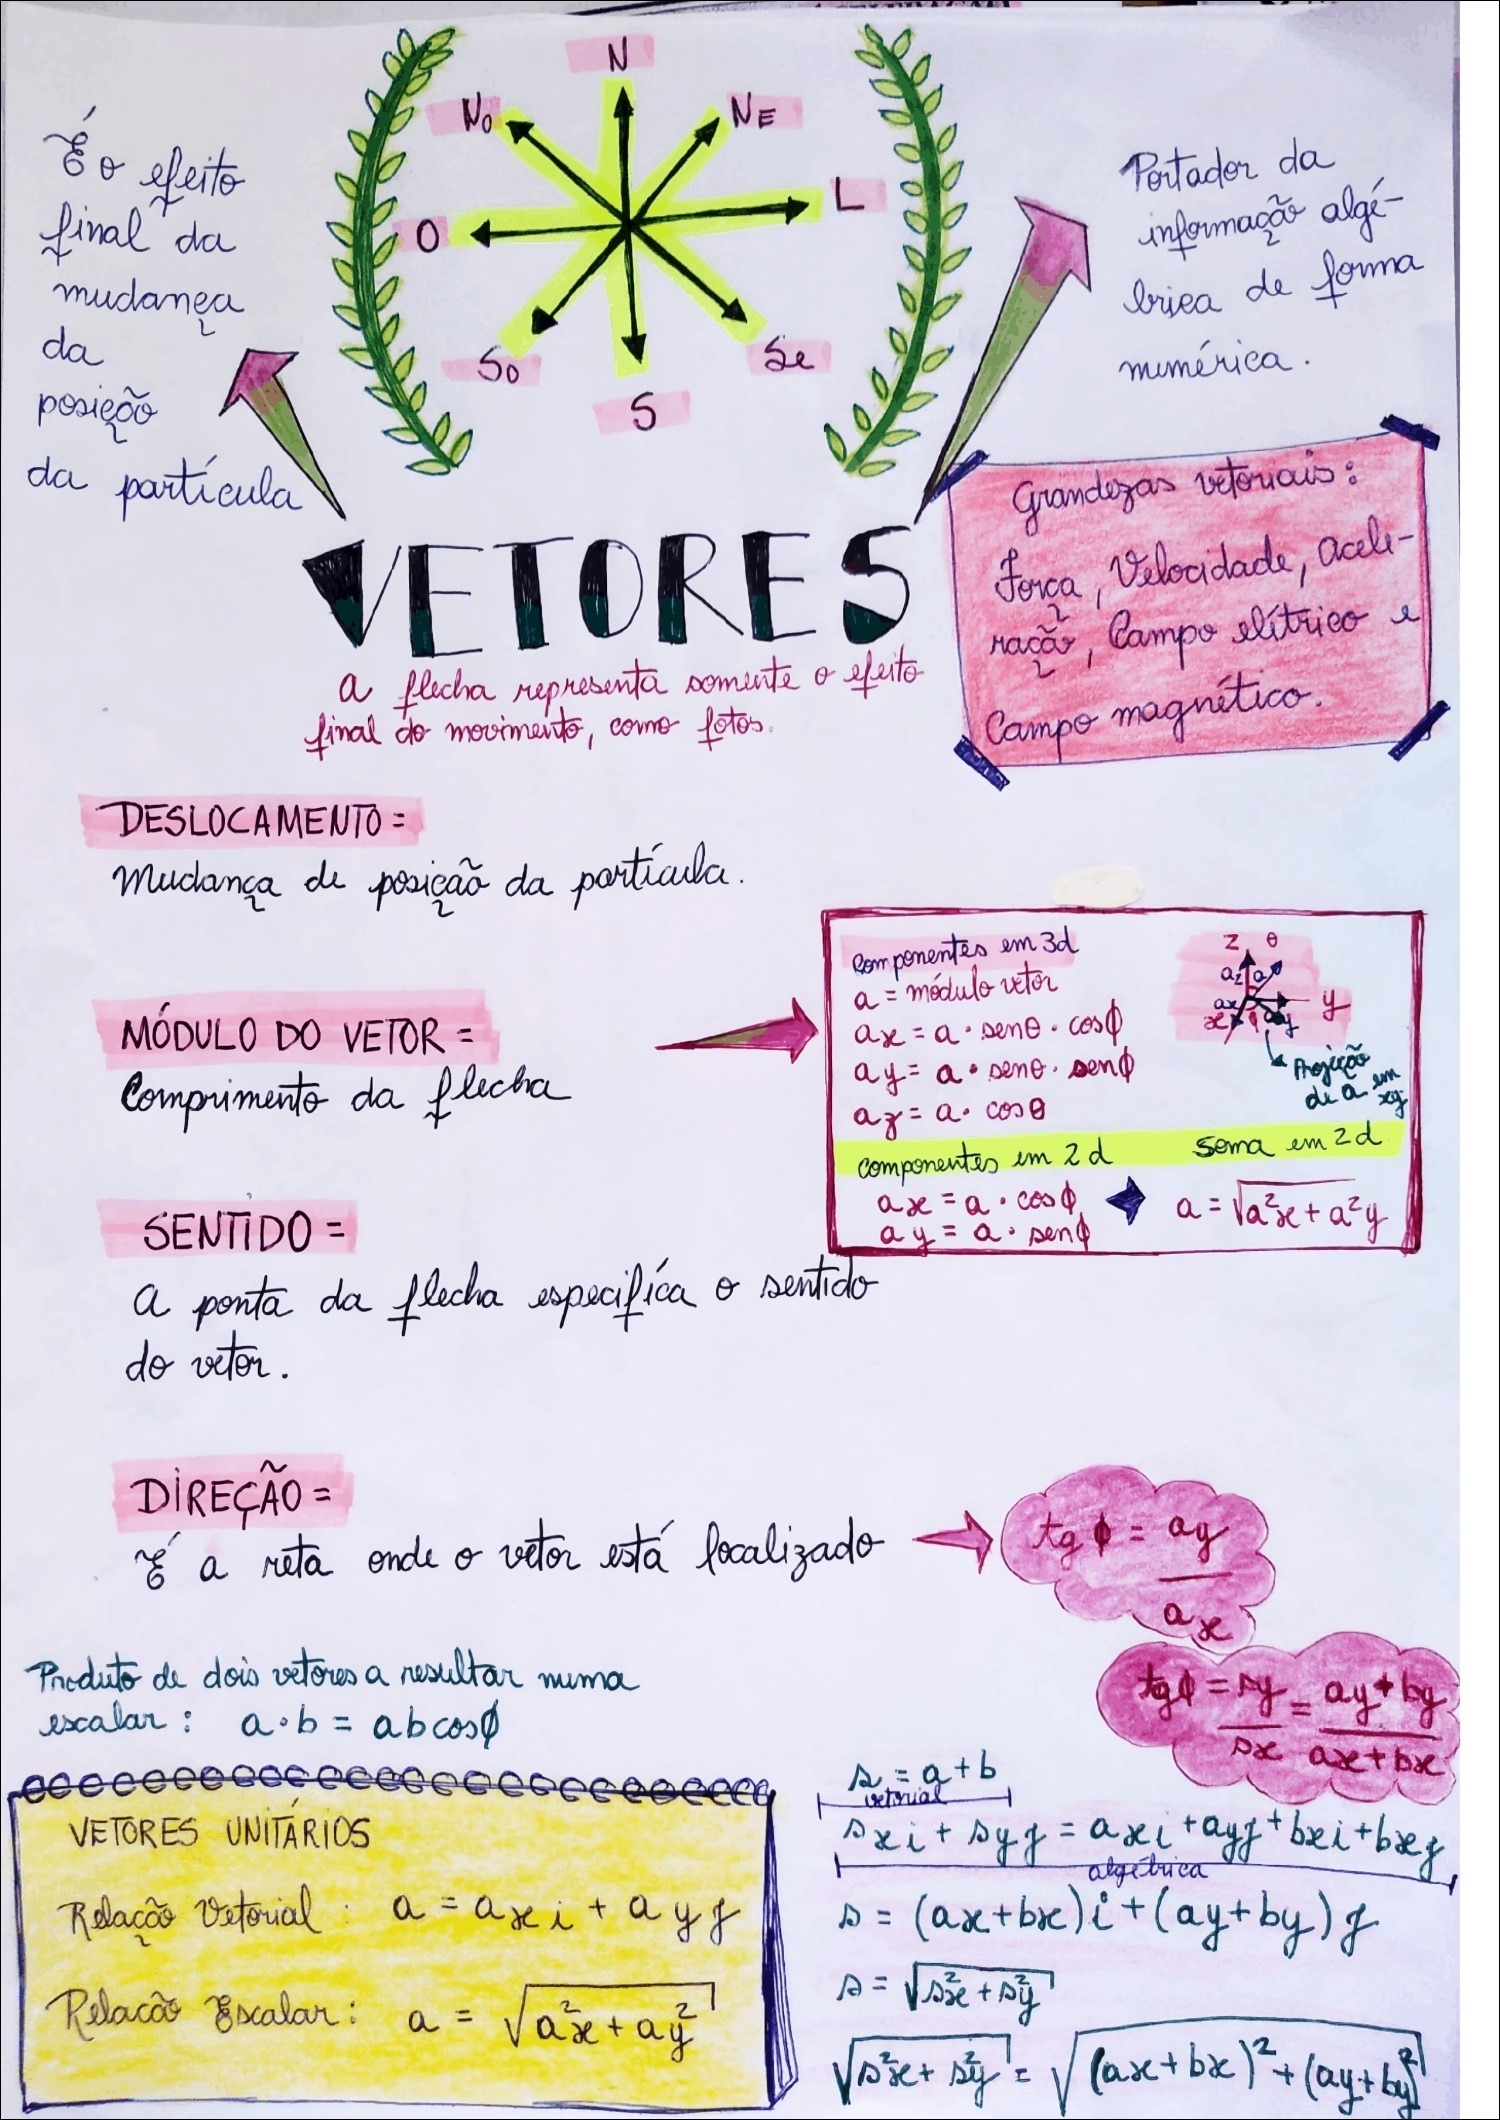 N
No
NE
O
L
So
Se
S
É o efeito
final da
mudança
da
posição
da partícula
Portador da
informação algé-
brica de forma
numérica.
VETORES
A flecha representa somente o efeito
final do movimento, como fotos.
Grandezas vetoriais:
Força, Velocidade, Acele-
ração, Campo elítrico e
Campo magnético.
DESLOCAMENTO =
Mudança de posição da partícula.
MÓDULO DO VETOR =
Comprimento da flecha
componentes em 3d
a = módulo vetor
ax = a · senθ · cosϕ
ay = a · senθ · senϕ
az = a · cosθ
z θ
az a
ax y
x ϕ axy
Projeção
de a em
xy
componentes em 2d soma em 2d
ax = a · cosϕ a = √a²x + a²y
ay = a · senϕ
SENTIDO =
A ponta da flecha especifíca o sentido
do vetor.
DIREÇÃO =
É a reta onde o vetor está localizado
tg ϕ = ay
ax
tgϕ = sy = ay + by
sx ax + bx
Produto de dois vetores a resultar numa
escalar: a · b = ab cosϕ
VETORES UNITÁRIOS
Relação Vetorial: a = axi + ayj
Relacão Escalar: a = √a²x + ay²
s = a + b
vetorial
sxi + syj = axi + ayj + bxi + bxj
algébrica
s = (ax + bx)i + (ay + by)j
s = √s²x + s²y
√s²x + s²y = √(ax + bx)² + (ay + by)²